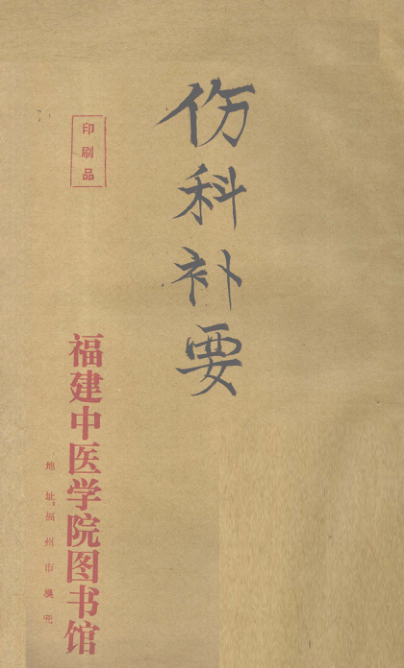 伤科补要
印刷品
福建中医学院图书馆
地址:福州市